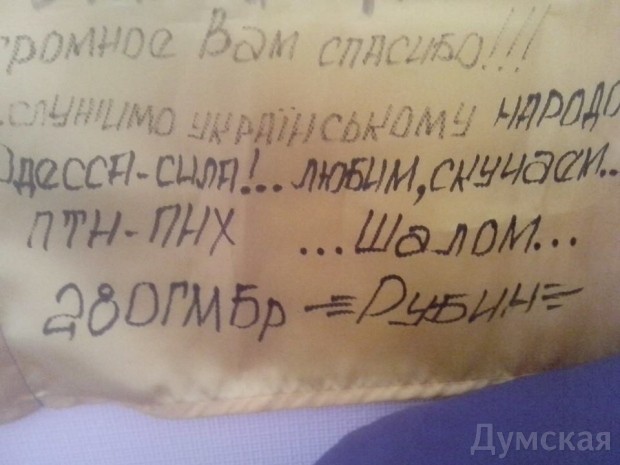 громное Вам спасибо!!!
служимо українському народо
Одесса-сила!.. любим, скучаем..
ПТН-ПНХ ...Шалом...
28 ОГМБр =Рубин=
Думская